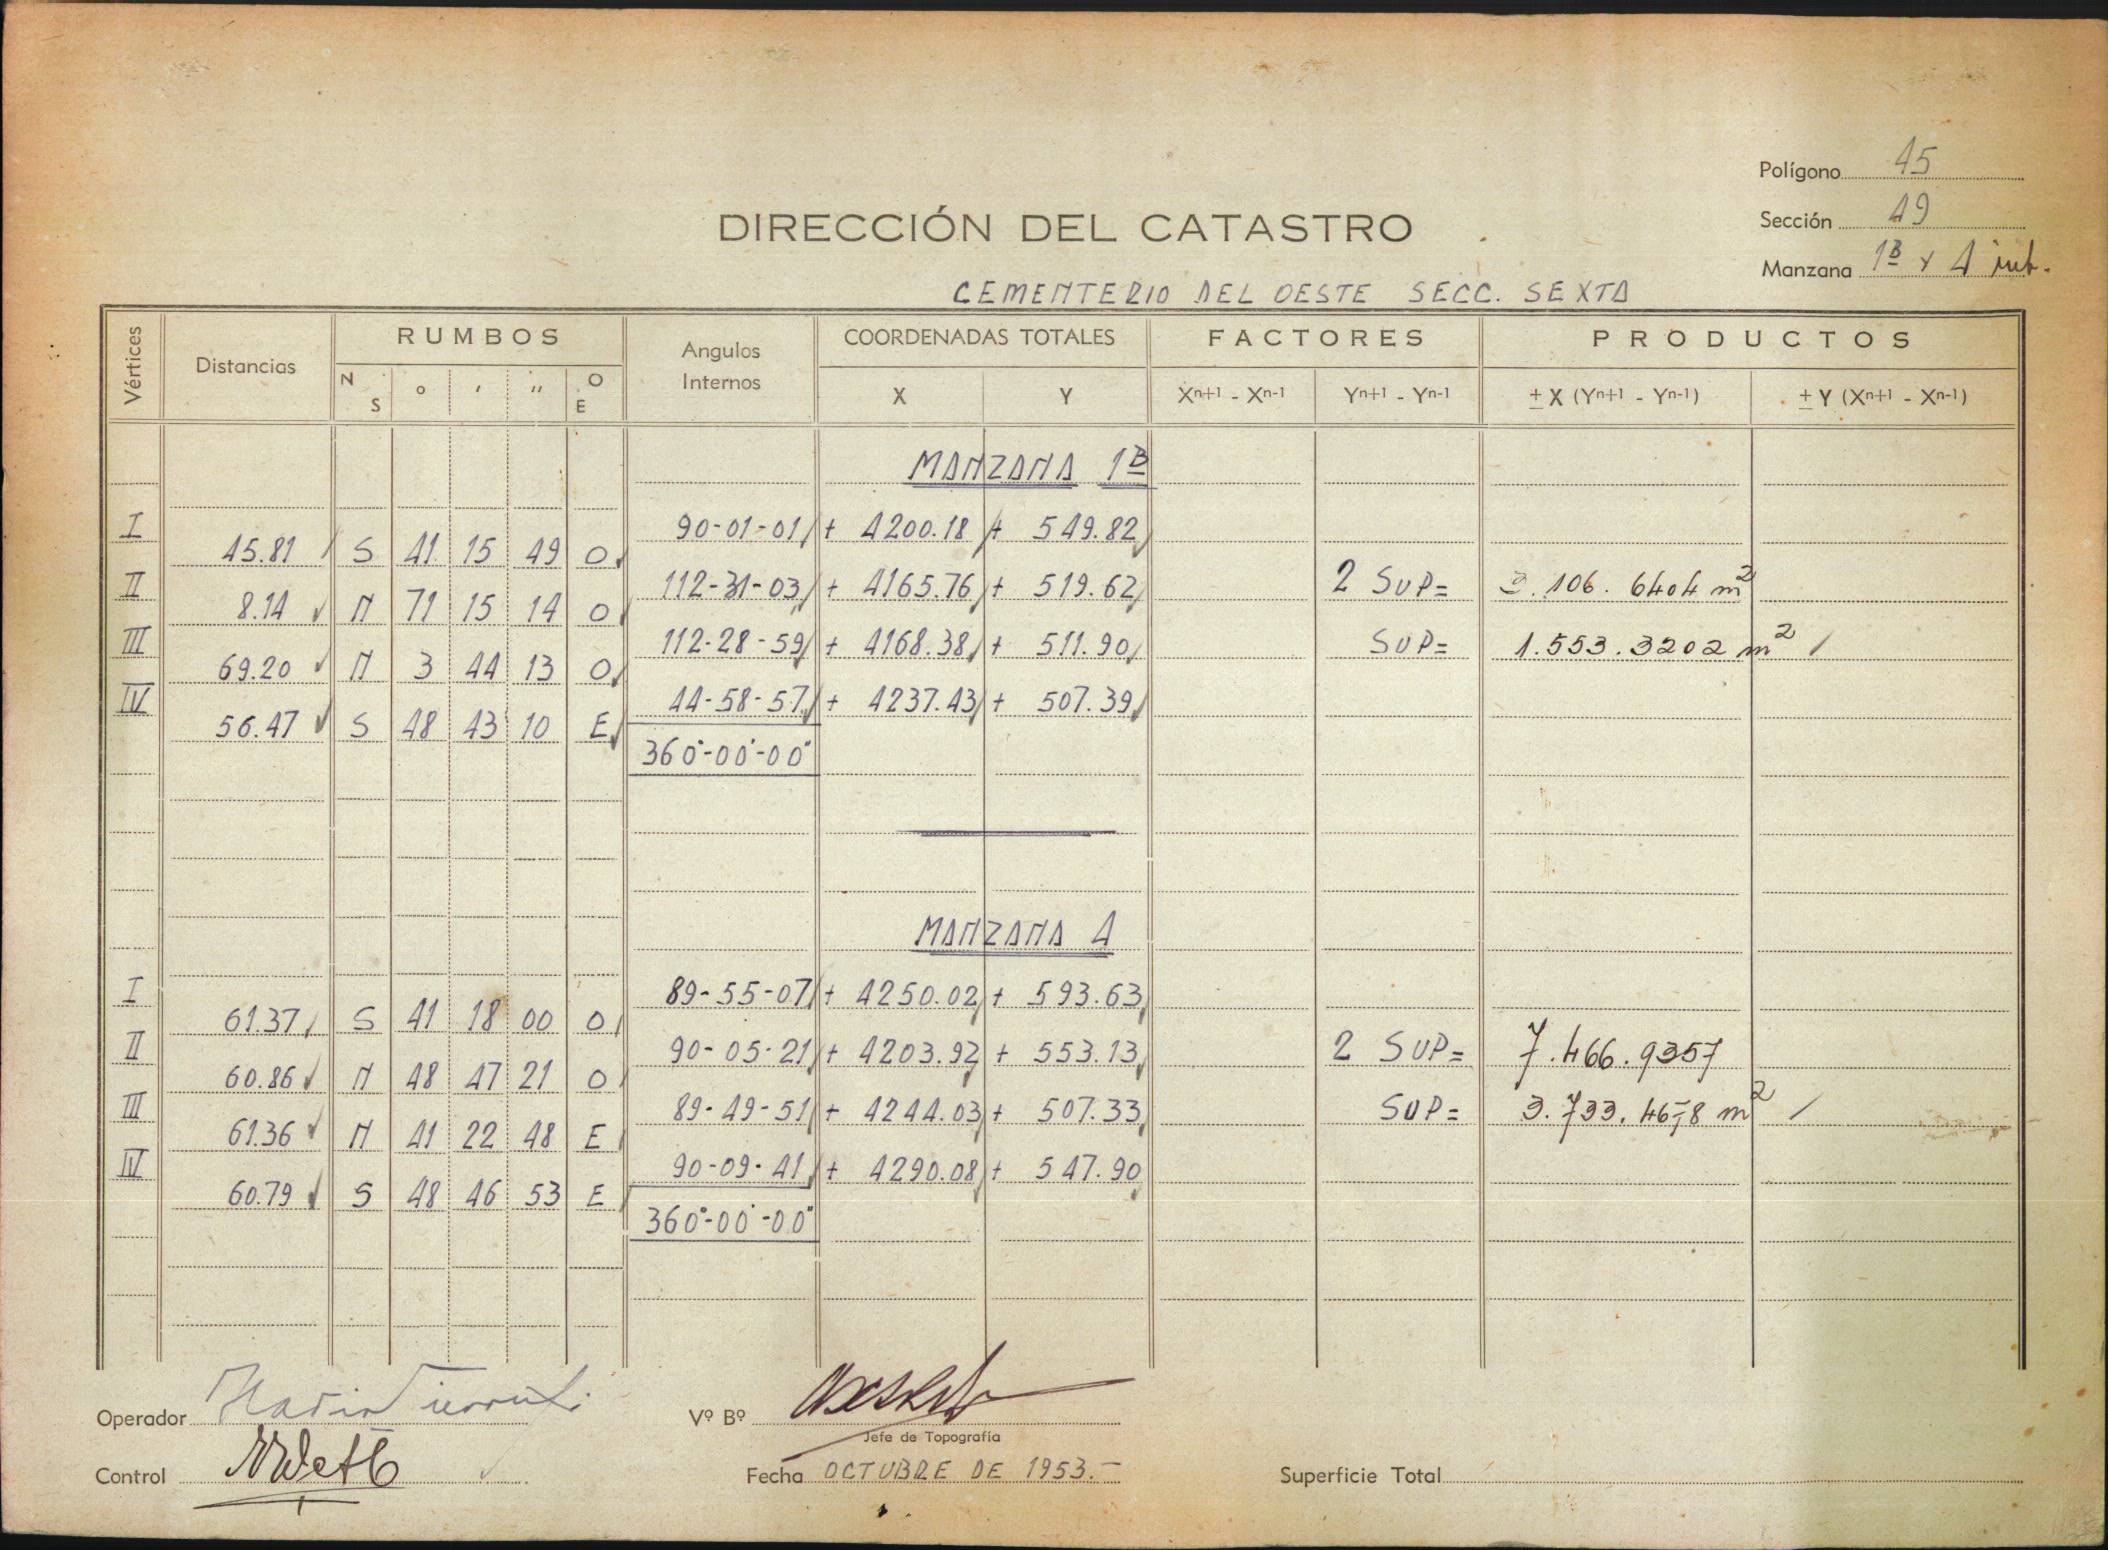 Polígono 45
DIRECCIÓN DEL CATASTRO
Sección 49
Manzana 1B y 4 int.
CEMENTERIO DEL OESTE SECC. SEXTA
Vértices Distancias RUMBOS Angulos Internos COORDENADAS TOTALES FACTORES PRODUCTOS
N S ° ' " O E X Y Xn+1 - Xn-1 Yn+1 - Yn-1 ± X (Yn+1 - Yn-1) ± Y (Xn+1 - Xn-1)
MANZANA 1B
I 90-01-01 + 4200.18 + 549.82
45.81 S 41 15 49 O
II 112-31-03 + 4165.76 + 519.62 2 SUP= 3.106.6404 m2
8.14 N 71 15 14 O
III 112-28-59 + 4168.38 + 511.90 SUP= 1.553.3202 m2
69.20 N 3 44 13 O
IV 44-58-57 + 4237.43 + 507.39
56.47 S 48 43 10 E
360°-00'-00"
MANZANA 4
I 89-55-07 + 4250.02 + 593.63
61.37 S 41 18 00 O
II 90-05-21 + 4203.92 + 553.13 2 SUP= 7.466.9357
60.86 N 48 47 21 O
III 89-49-51 + 4244.03 + 507.33 SUP= 3.733.4678 m2
61.36 N 41 22 48 E
IV 90-09-41 + 4290.08 + 547.90
60.79 S 48 46 53 E
360°-00'-00"
Operador
Vº Bº
Jefe de Topografía
Control
Fecha OCTUBRE DE 1953.-
Superficie Total